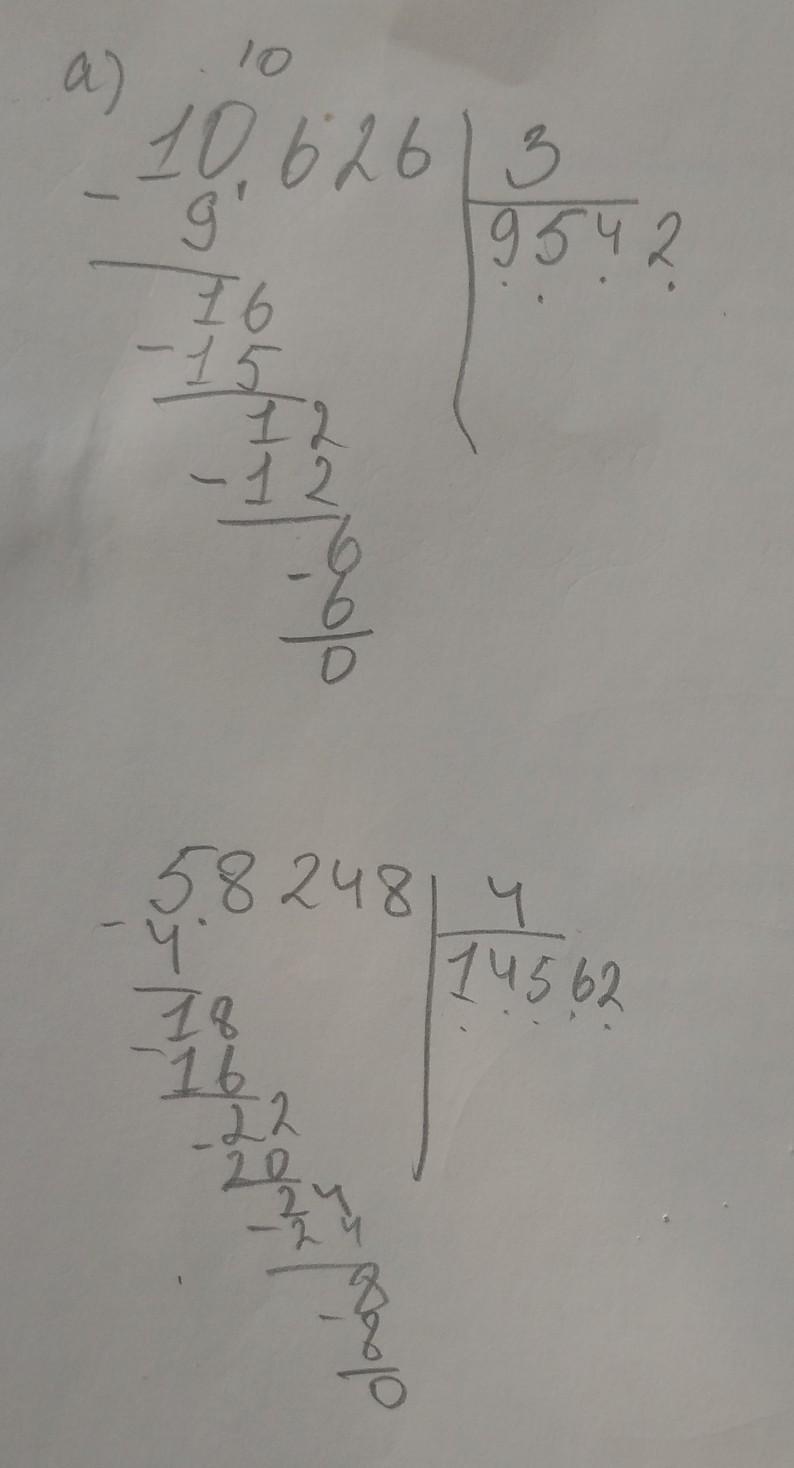 10
а) 10626 | 3
- 9 | 9542
16
- 15
12
- 12
6
- 6
0
58248 | 4
- 4 | 14562
18
- 16
22
- 20
24
- 24
8
- 8
0